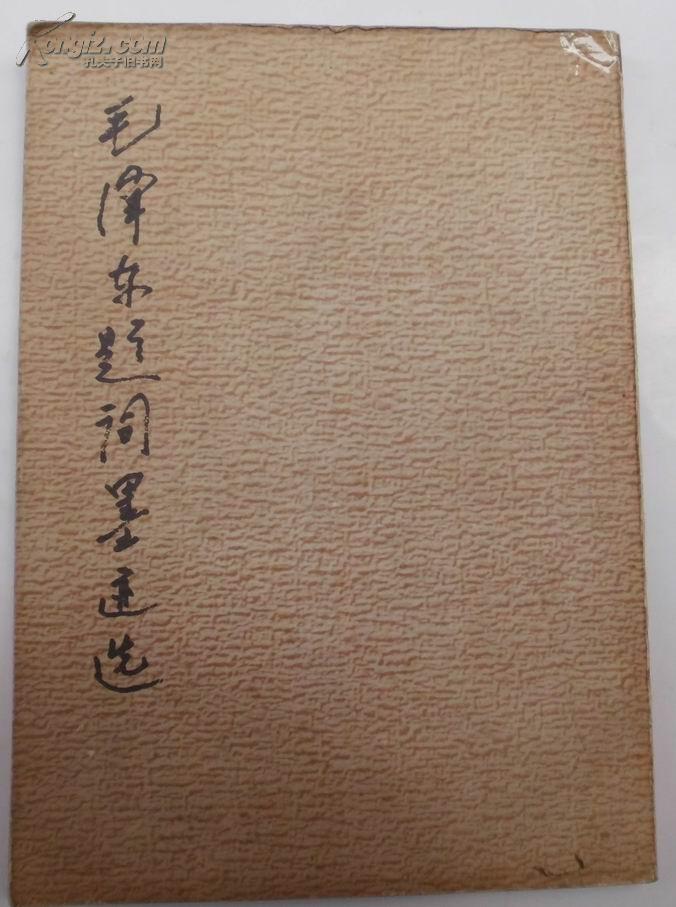 Kongfz.com
孔夫子旧书网
毛泽东题词墨迹选